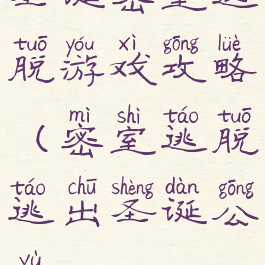 圣诞密室逃
tuō yóu xì gōng lüè
脱游戏攻略
mì shì táo tuō
（密室逃脱
táo chū shèng dàn gōng
逃出圣诞公
yù